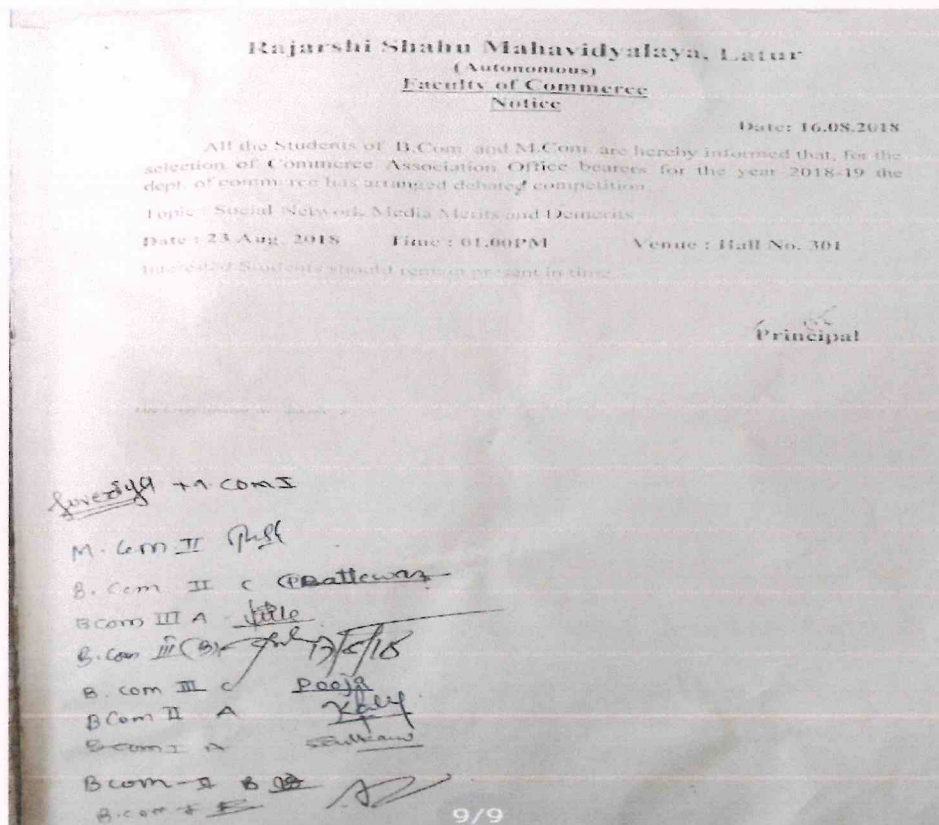 Rajarshi Shahu Mahavidyalaya, Latur
(Autonomous)
Faculty of Commerce
Notice
Date: 16.08.2018
All the Students of B.Com and M.Com are hereby informed that, for the
selection of Commerce Association Office bearers for the year 2018-19 the
dept. of commerce has arranged debate competition.
Topic : Social Network Media Merits and Demerits
Date : 23 Aug. 2018 Time : 01.00PM Venue : Hall No. 301
Interested Students should remain present in time
Principal
M.Com I
M. Com II
B. Com II C
BCom III A
B.Com III (B)
B. Com III C Pooja
BCom II A
B com I A
Bcom - II B
B.com - I
9/9